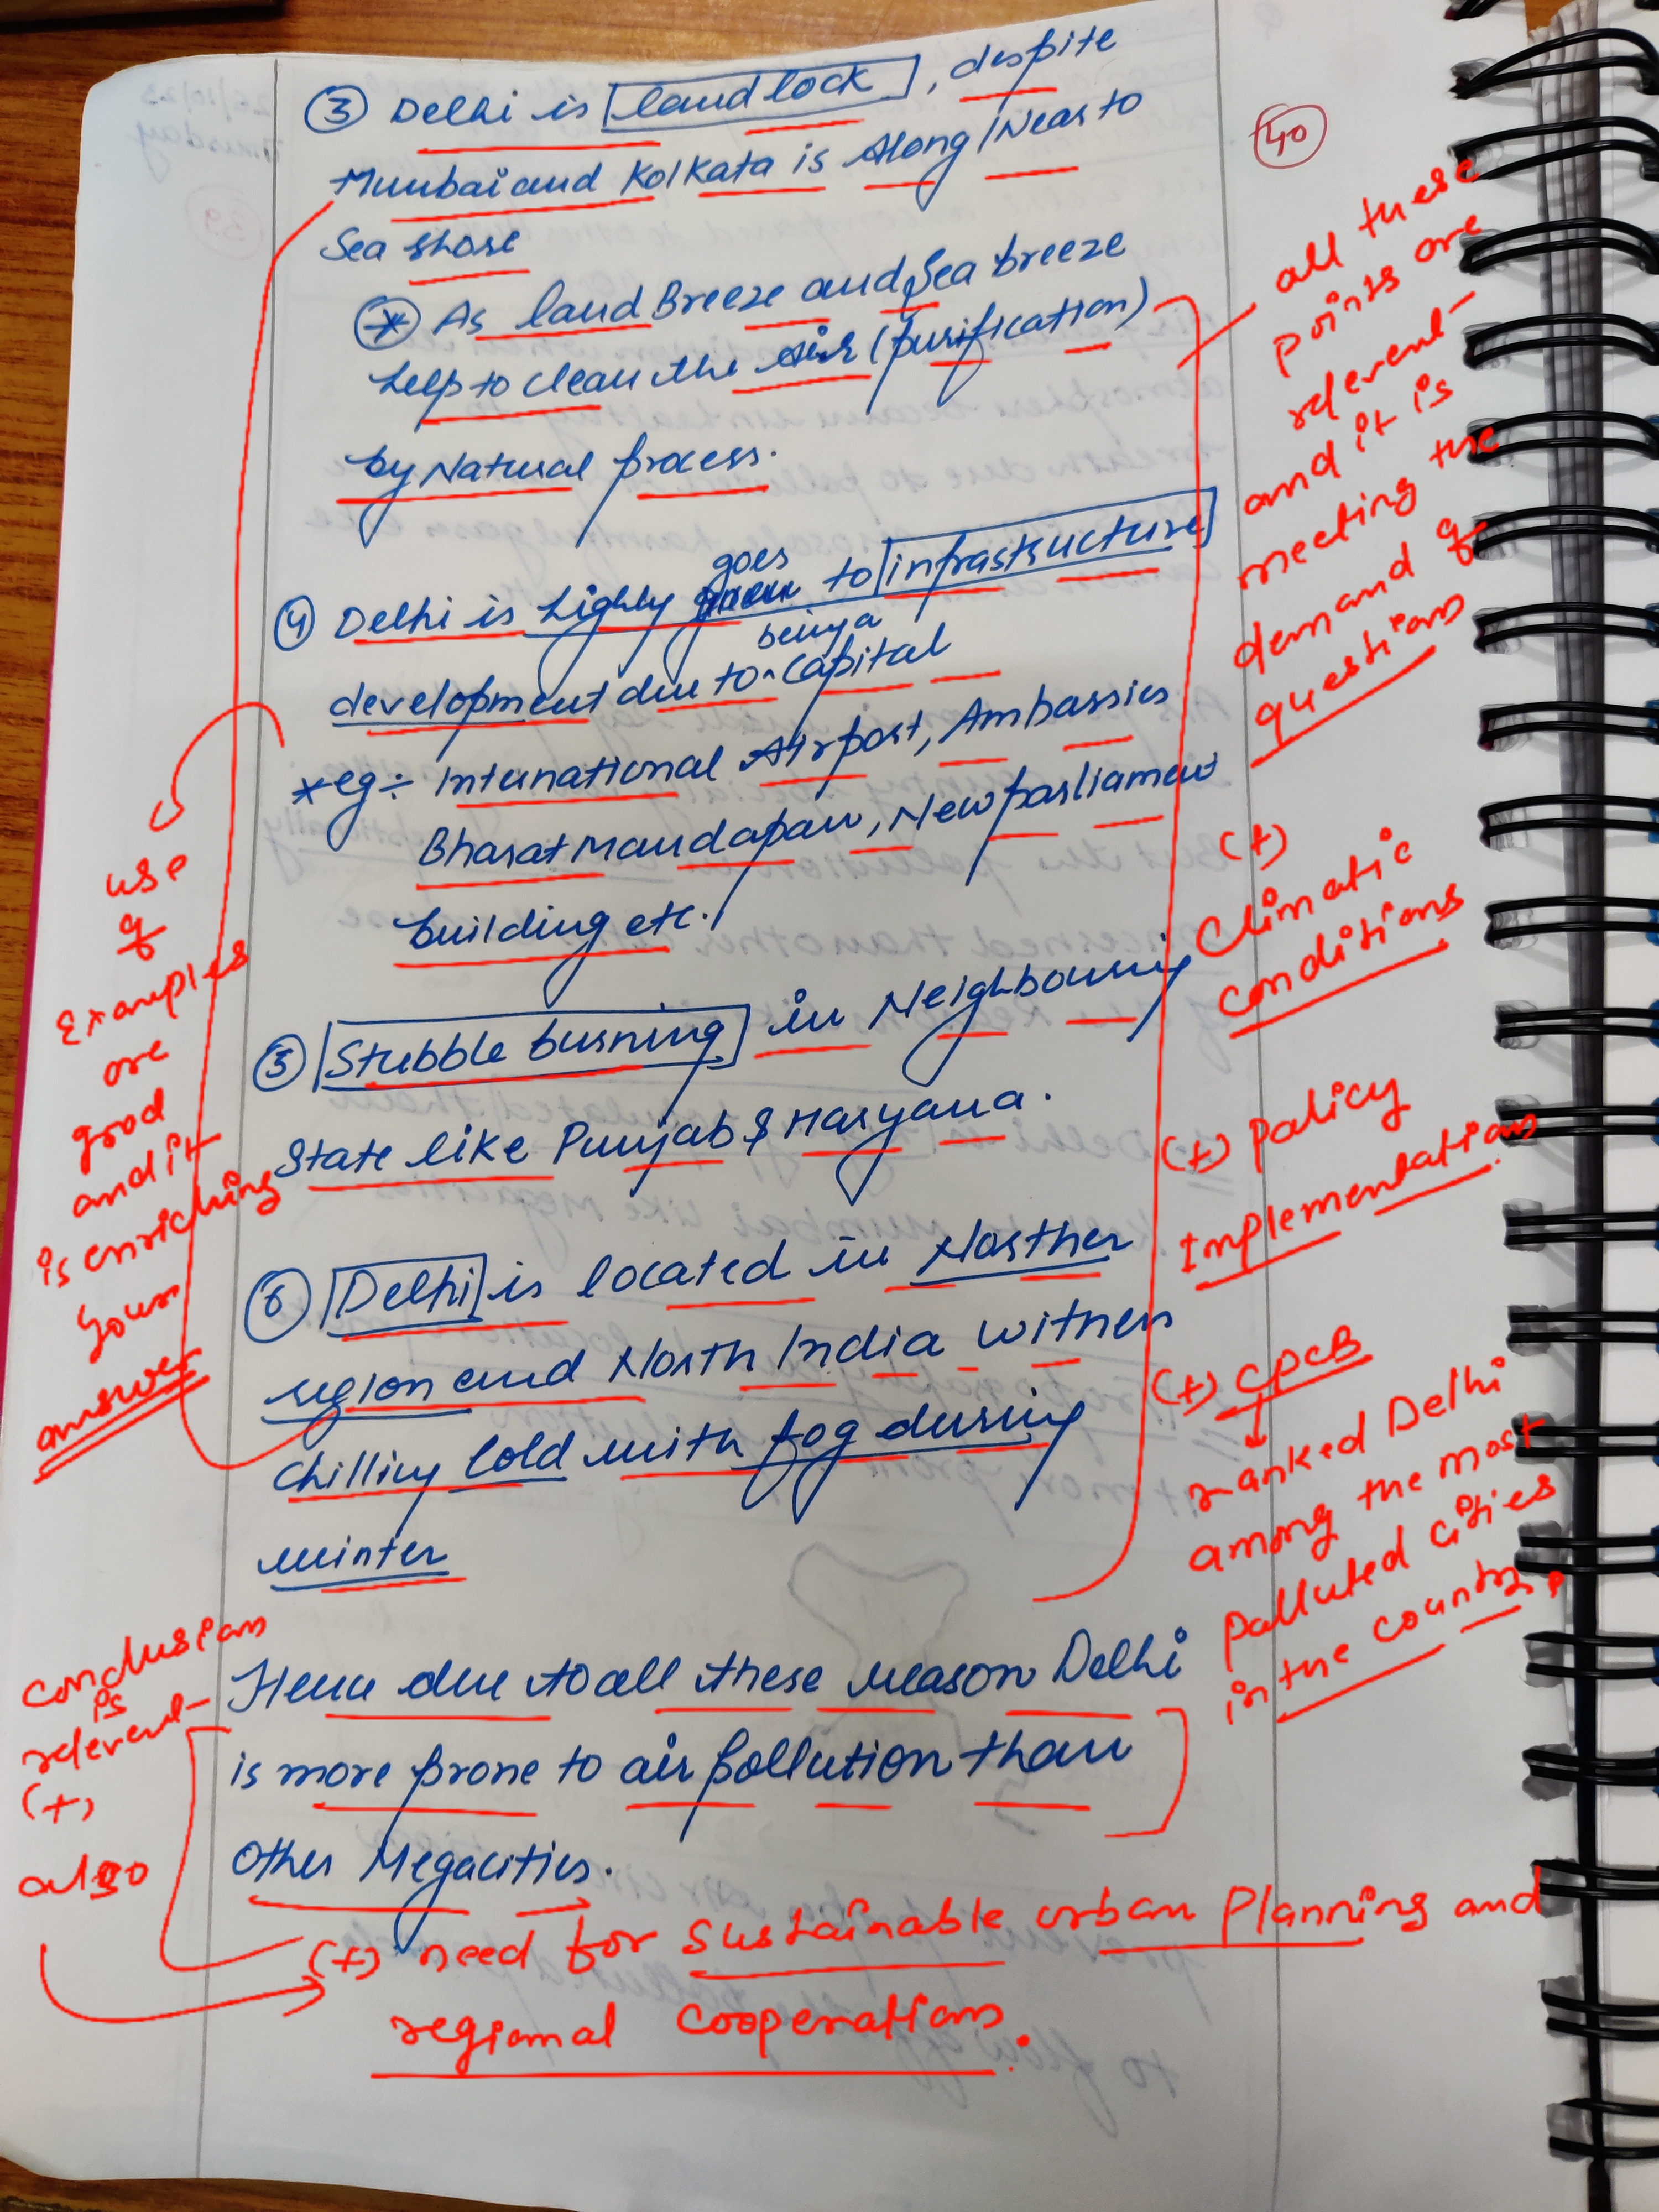 40
③ Delhi is land lock, despite
Mumbai and Kolkata is Along / Near to
Sea Shore
* As land Breeze and Sea breeze
help to clean the Air (purification)
by Natural process.
④ Delhi is highly goes to infrastructure
development due to being a Capital
* eg÷ International Airport, Ambassies
Bharat Mandapam, New parliament
building etc.
⑤ Stubble burning in Neighbouring
State like Punjab & Haryana.
⑥ Delhi is located in Norther
region and North India witness
chilling Cold with fog during
winter
Hence due to all these reason Delhi
is more prone to air pollution than
Other Megacities.
all these
points are
relevent
and it is
meeting the
demand of
questions
(+)
Climatic
conditions
(+) Policy
Implementations
(+) CPCB
↓
ranked Delhi
among the most
polluted cities
in the country.
use
of
Examples
are
good
and it
is enriching
your
answer
conclusion
is
relevent
(+)
also
(+) need for Sustainable urban Planning and
regional Cooperations.